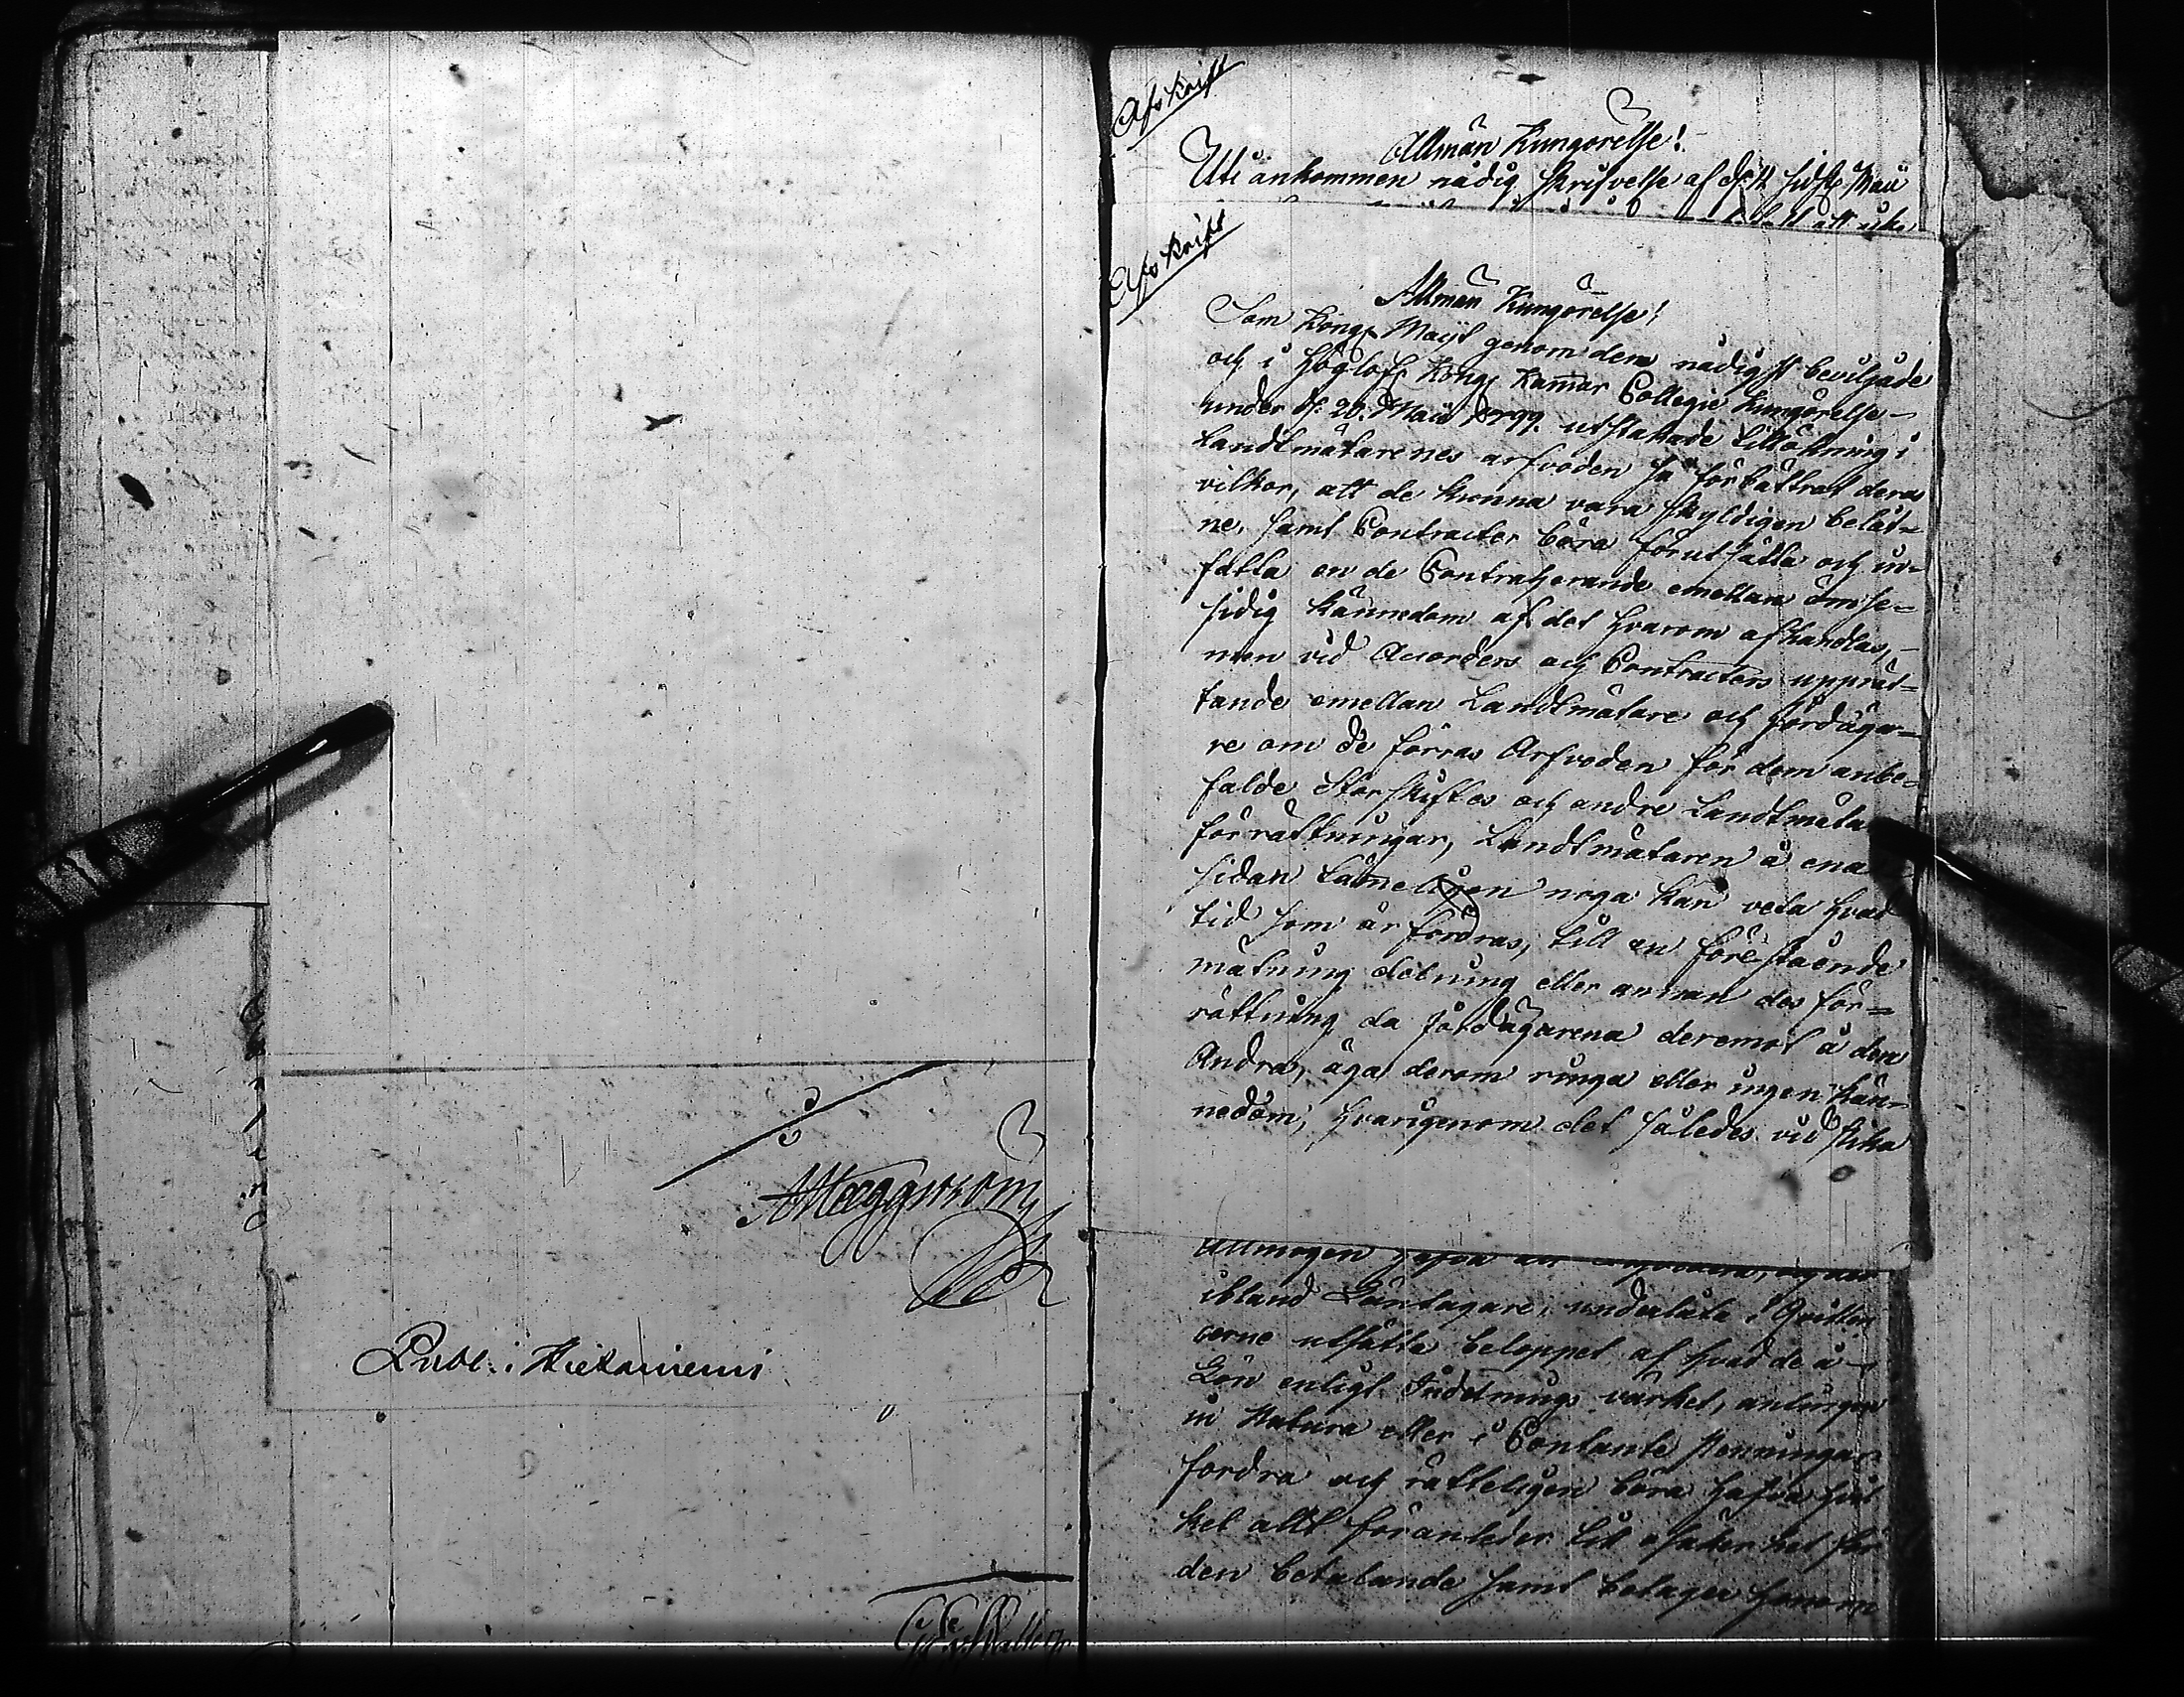 AHäggström
Publ: i Hietaniemi
Afskrift
Allmän Kungörelse!
Uti ankommen nådig skrifvelse af d: sidste Maii
att
Afskrift
Allmän Kungörelse!
Som Kongl Maijt genom dem nådigst beviljade
och i Höglofl Kongl Kammar Collegii kungörelse
under d: 20. Maii utstakade tillökning i
Landtmätarenes arfvoden så förbättrat deras
vilkor, att de kunna vara skyldigen belåt=
ne, samt Contracter böra förutsätta och in=
fatta en de Contraherande emellan ömse=
sidig kännedom af det hvarom afhandlas,
men vid Accorders och Contracters upprät=
tande emellan Landtmätare och Jordäga=
re om de förras Arfvoden för dem anbe=
falde Storskiftes och andre Landtmäta
förrättningar, Landtmätaren å ena
sidan nämeligen noga kan veta hvad
tid som är fordras, till en förestående
mätning delning eller annan des för=
rättning da Jordägarena deremot å den
Andra, äga derom ringa eller ingen kän=
nedom, hvarigenom det således vid slika
Allmogen hafva
ibland Löntagare, underlåta i Qvitten
cerne utsätta beloppet af hvad de å
Lön enligt Indelnings värket, antingen
in Natura eller i Contante Penningar
fordra och rätteligen böra hafva hvil
ket allt föranleder till osäkerhet för
den betalande samt betager honom